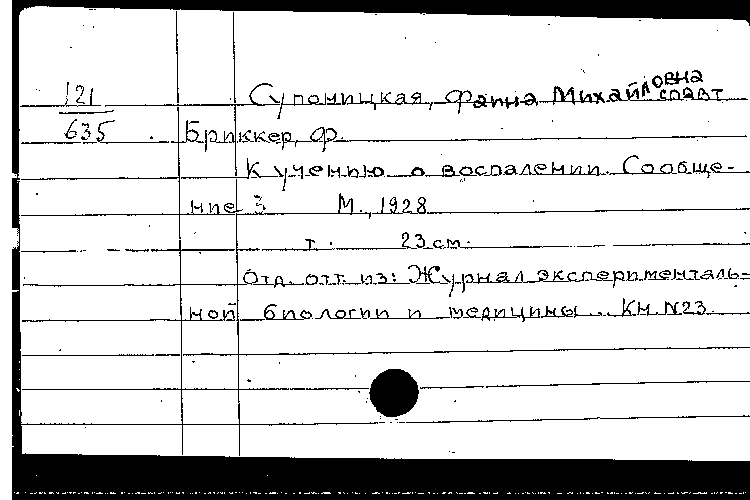 121
635
Супоницкая, Фаина Михайловна
соавт
Бриккер, Ф.
К учению о воспалении. Сообще-
ние 3 М., 1928
т. 23 см.
Отд. отт. из: Журнал эксперименталь-
ной биологии и медицины... Кн. N23.